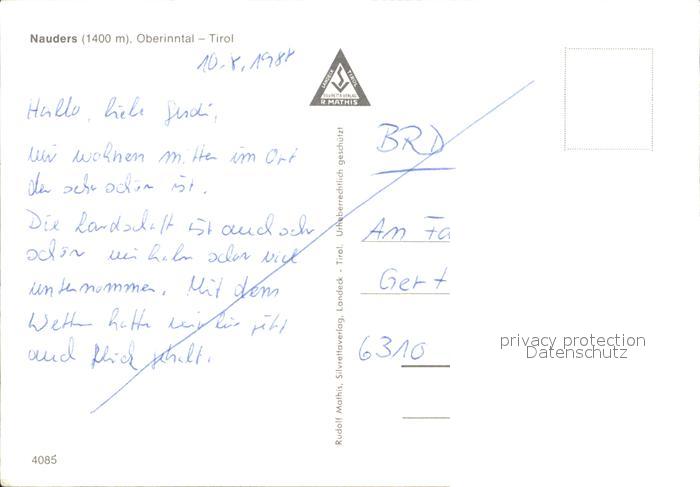 Nauders (1400 m), Oberinntal – Tirol
10.8.1988
Hallo, liebe Gerdi,
wir wohnen mitten im Ort
der sehr schön ist.
Die Landschaft ist auch sehr
schön wir haben schon viel
unternommen. Mit dem
Wetter hatten wir bis jetzt
auch Glück gehabt.
4085
LANDECK TIROL
SILVRETTA VERLAG
R. MATHIS
Rudolf Mathis, Silvrettaverlag, Landeck - Tirol. Urheberrechtlich geschützt
BRD
An Fa
Gert
6310
privacy protection
Datenschutz